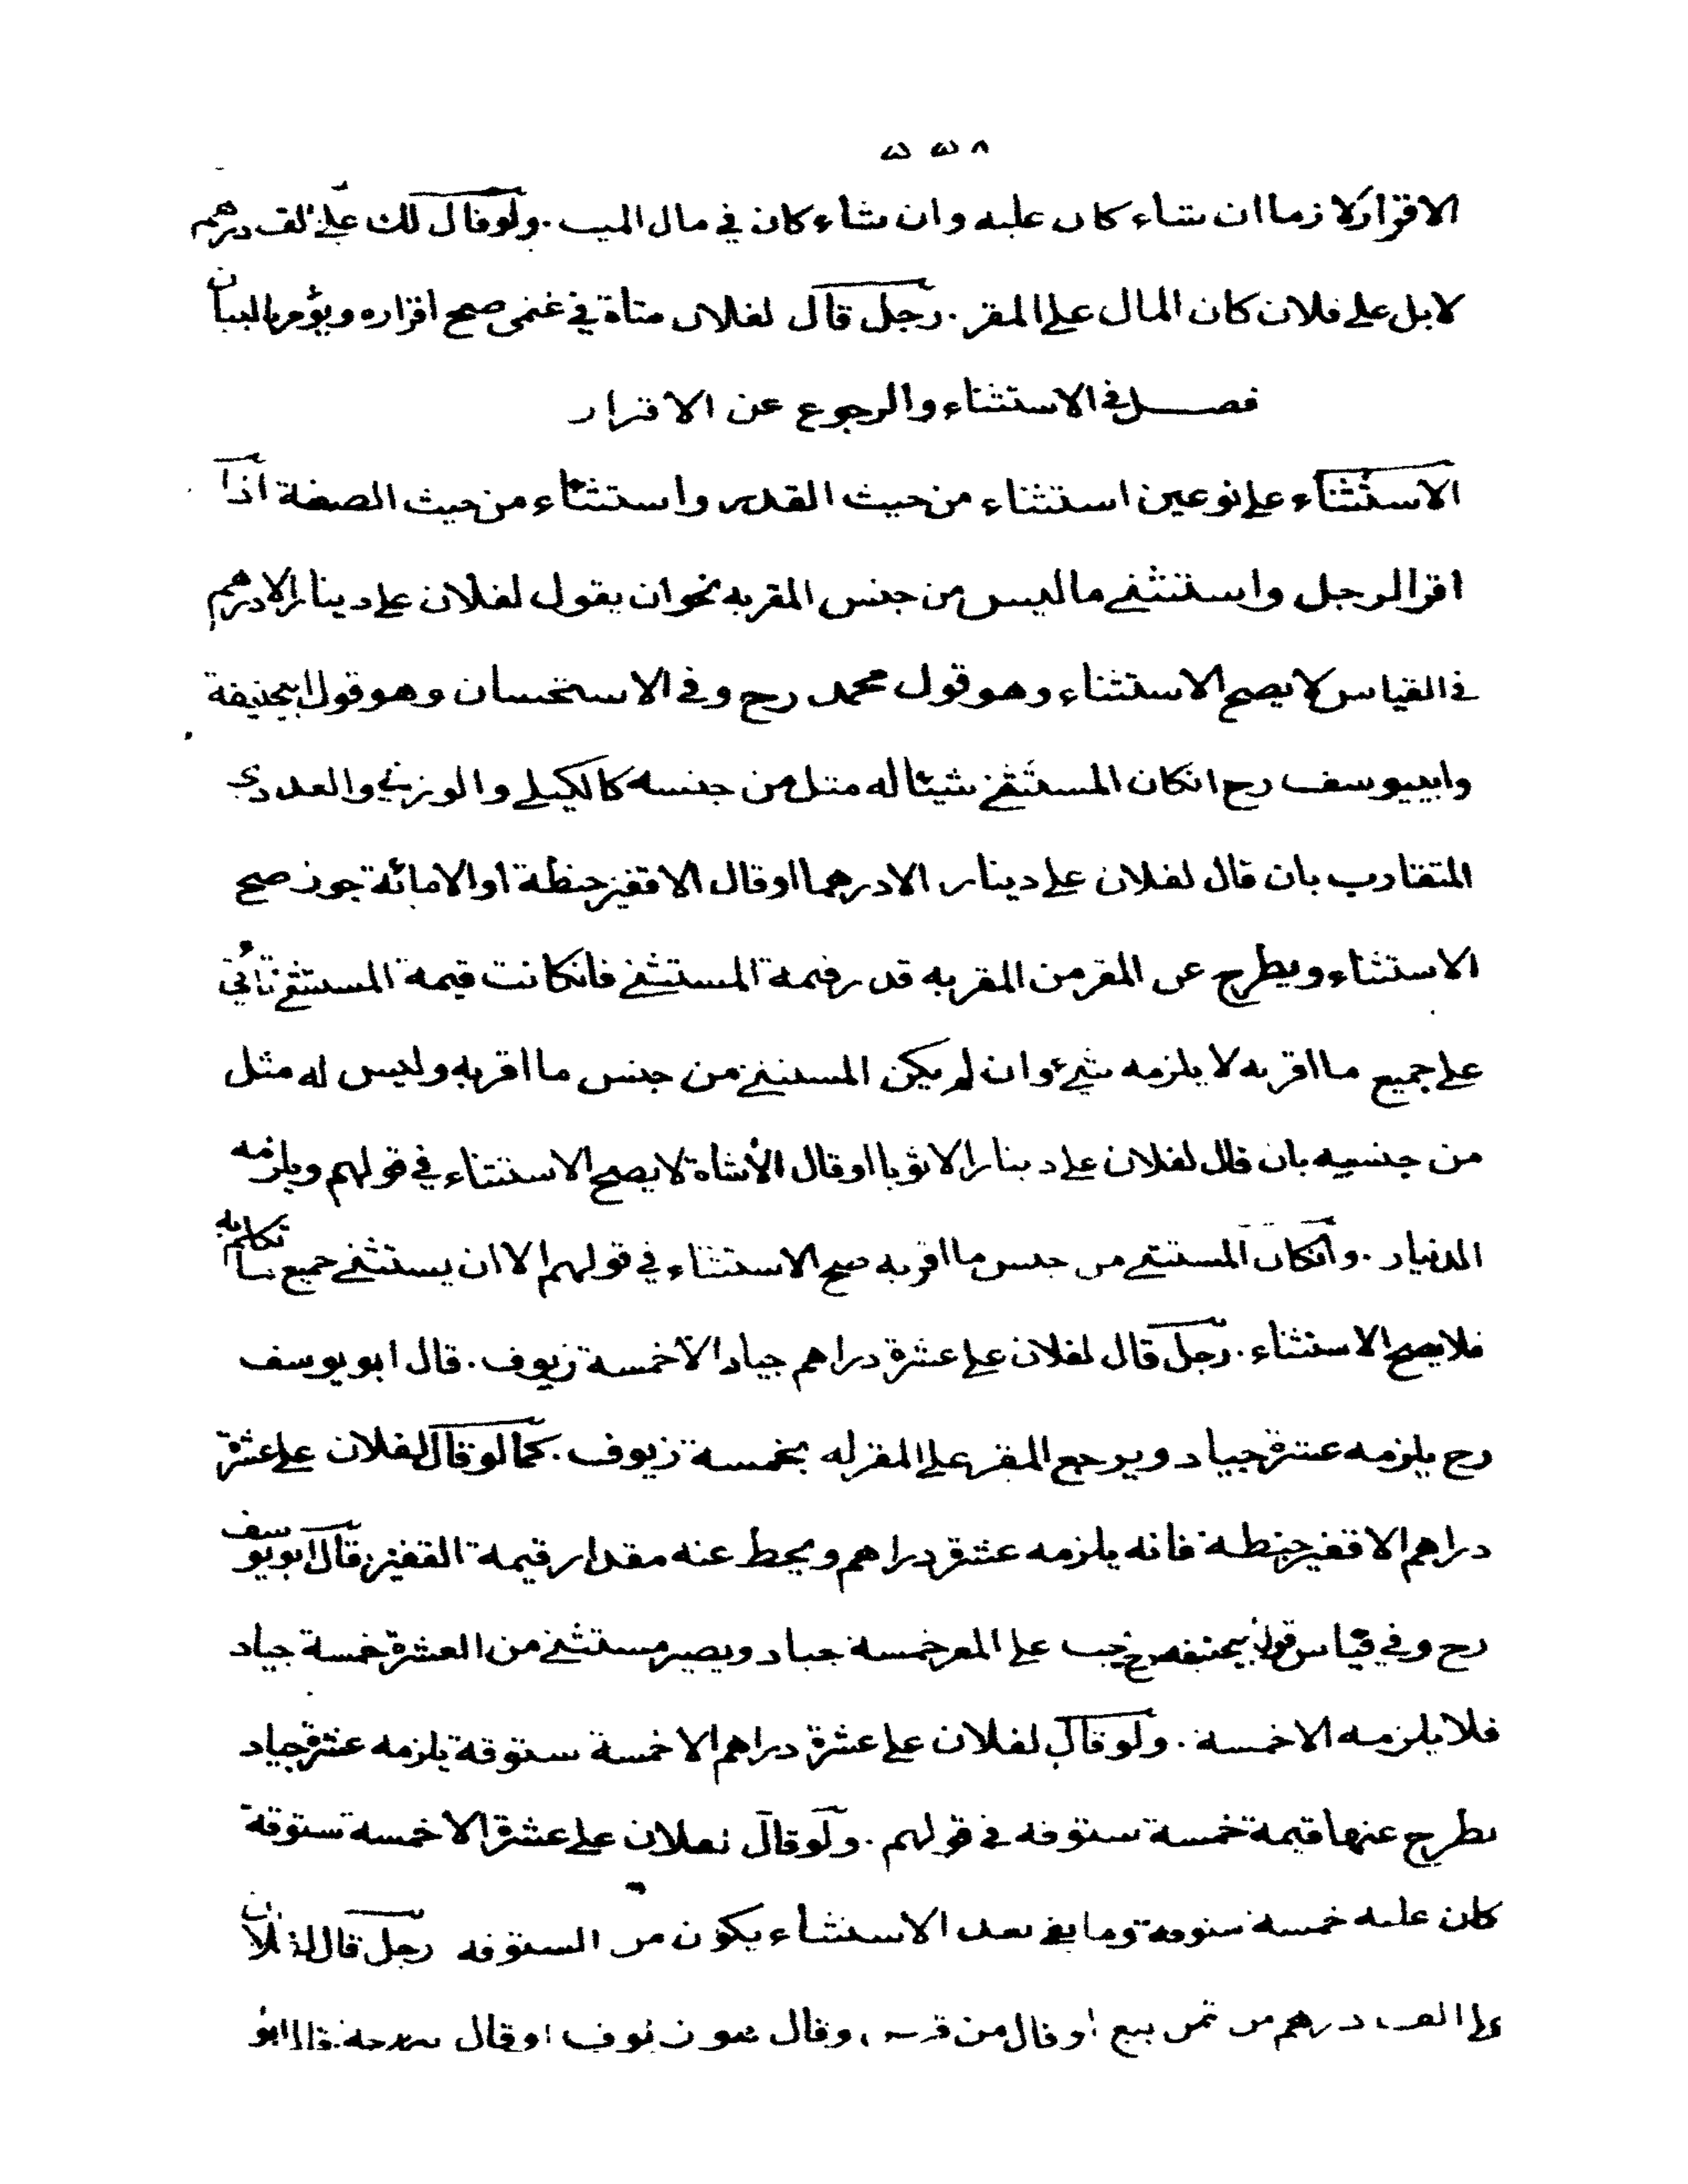 ٥٥٨
الاقرار لازما ان شاء كان عليه وان شاء كان في مال الميت . ولو قال لك علي الف درهم
لابل على فلان كان المال على المقر . رجل قال لفلان شاة في غنمي صح اقراره ويؤمر بالبيان
فصل في الاستثناء والرجوع عن الاقرار
الاستثناء على نوعين استثناء من حيث القدر واستثناء من حيث الصفة اذا
اقر الرجل واستثنى ما ليس من جنس المقر به نحو ان يقول لفلان علي دينار الا درهم
في القياس لا يصح الاستثناء وهو قول محمد رح وفي الاستحسان وهو قول ابيحنيفة
وابييوسف رح انكان المستثنى شيئا له مثل من جنسه كالكيلي والوزني والعددي
المتقارب بان قال لفلان علي دينار الا درهما او قال الا قفيز حنطة او الا مائة جوز صح
الاستثناء ويطرح عن المقر من المقر به قدر قيمة المستثنى فانكانت قيمة المستثنى تأتي
على جميع ما اقر به لا يلزمه شيء وان لم يكن المستثنى من جنس ما اقر به وليس له مثل
من جنسه بان قال لفلان علي دينار الا ثوبا او قال الا شاة لا يصح الاستثناء في قولهم ويلزمه
الدينار . وانكان المستثنى من جنس ما اقر به صح الاستثناء في قولهم الا ان يستثنى جميع ما تكلم به
فلا يصح الاستثناء . رجل قال لفلان علي عشرة دراهم جياد الا خمسة زيوف . قال ابو يوسف
رح يلزمه عشرة جياد ويرجع المقر على المقر له بخمسة زيوف . كما لو قال لفلان علي عشرة
دراهم الا قفيز حنطة فانه يلزمه عشرة دراهم ويحط عنه مقدار قيمة القفيز . قال ابو يوسف
رح وفي قياس قول ابيحنيفة رح يجب على المقر خمسة جياد ويصير مستثنى من العشرة خمسة جياد
فلا يلزمه الا خمسة . ولو قال لفلان علي عشرة دراهم الا خمسة ستوقة يلزمه عشرة جياد
يطرح عنها قيمة خمسة ستوقة في قولهم . ولو قال لفلان علي عشرة الا خمسة ستوقة
كان عليه خمسة ستوقة وما بقي بعد الاستثناء يكون من الستوقة رجل قال لفلان
علي الف درهم من ثمن بيع او قال من قرض وقال هو زيوف او قال نبهرجة قال ابو